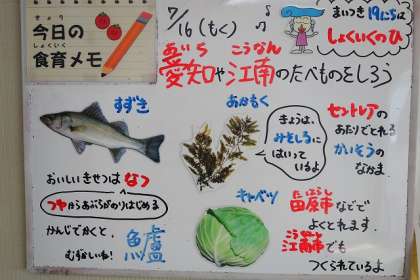 きょう
今日の
しょくいく
食育メモ
7/16(もく)
まいつき19にちは
しょくいくのひ
あいち こうなん
愛知や江南のたべものをしろう
すずき
おいしいきせつは なつ
つゆからあぶらがのりはじめる
かんじでかくと、
むずかしいね!
鱸
あかもく
きょうは、
みそしるに
はいって
いるよ
セントレアの
あたりでとれる
かいそうの
なかま
キャベツ
たはらし
田原市などで
よくとれます。
こうなんし
江南市でも
つくられているよ